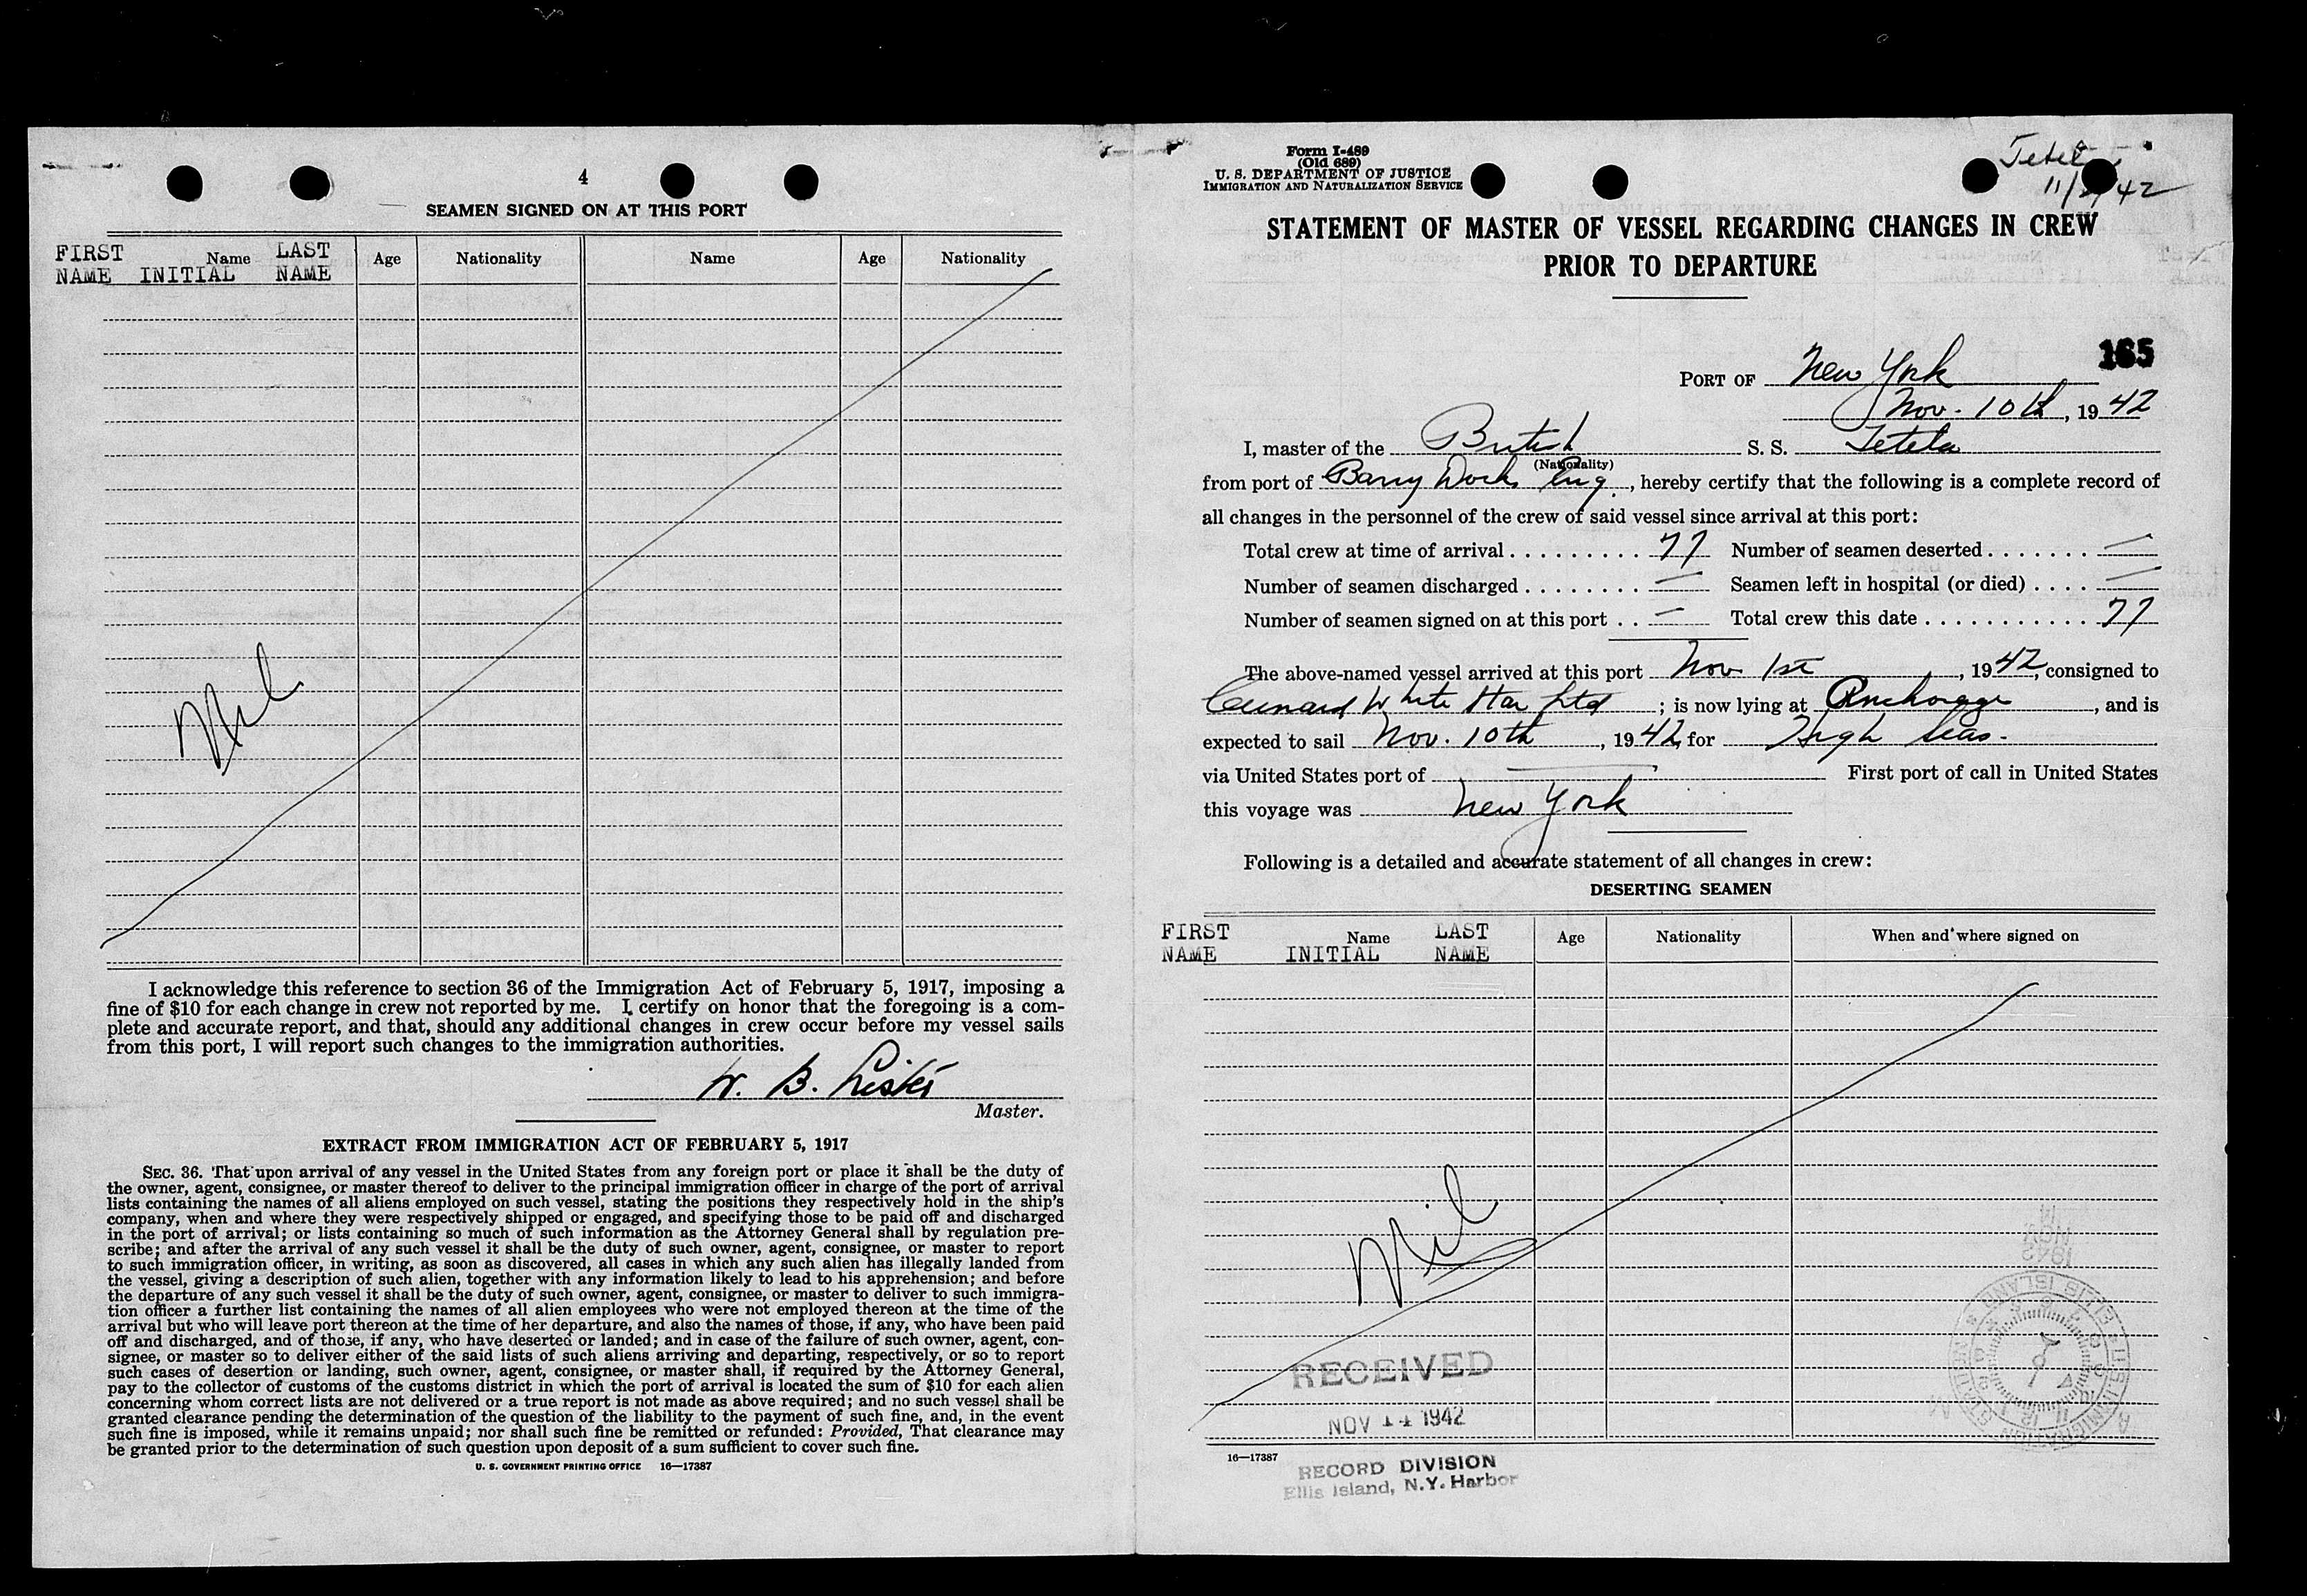 4
SEAMEN SIGNED ON AT THIS PORT
FIRST NAME INITIAL Name LAST NAME Age Nationality Name Age Nationality
Nil
I acknowledge this reference to section 36 of the Immigration Act of February 5, 1917, imposing a
fine of $10 for each change in crew not reported by me. I certify on honor that the foregoing is a com-
plete and accurate report, and that, should any additional changes in crew occur before my vessel sails
from this port, I will report such changes to the immigration authorities.
W. B. Lister
Master.
EXTRACT FROM IMMIGRATION ACT OF FEBRUARY 5, 1917
SEC. 36. That upon arrival of any vessel in the United States from any foreign port or place it shall be the duty of
the owner, agent, consignee, or master thereof to deliver to the principal immigration officer in charge of the port of arrival
lists containing the names of all aliens employed on such vessel, stating the positions they respectively hold in the ship's
company, when and where they were respectively shipped or engaged, and specifying those to be paid off and discharged
in the port of arrival; or lists containing so much of such information as the Attorney General shall by regulation pre-
scribe; and after the arrival of any such vessel it shall be the duty of such owner, agent, consignee, or master to report
to such immigration officer, in writing, as soon as discovered, all cases in which any such alien has illegally landed from
the vessel, giving a description of such alien, together with any information likely to lead to his apprehension; and before
the departure of any such vessel it shall be the duty of such owner, agent, consignee, or master to deliver to such immigra-
tion officer a further list containing the names of all alien employees who were not employed thereon at the time of the
arrival but who will leave port thereon at the time of her departure, and also the names of those, if any, who have been paid
off and discharged, and of those, if any, who have deserted or landed; and in case of the failure of such owner, agent, con-
signee, or master so to deliver either of the said lists of such aliens arriving and departing, respectively, or so to report
such cases of desertion or landing, such owner, agent, consignee, or master shall, if required by the Attorney General,
pay to the collector of customs of the customs district in which the port of arrival is located the sum of $10 for each alien
concerning whom correct lists are not delivered or a true report is not made as above required; and no such vessel shall be
granted clearance pending the determination of the question of the liability to the payment of such fine, and, in the event
such fine is imposed, while it remains unpaid; nor shall such fine be remitted or refunded: Provided, That clearance may
be granted prior to the determination of such question upon deposit of a sum sufficient to cover such fine.
U. S. GOVERNMENT PRINTING OFFICE 16—17387
Form I-489
(Old 689)
U. S. DEPARTMENT OF JUSTICE
IMMIGRATION AND NATURALIZATION SERVICE
STATEMENT OF MASTER OF VESSEL REGARDING CHANGES IN CREW
PRIOR TO DEPARTURE
165
PORT OF New York
Nov. 10th, 1942
I, master of the British S. S. Tetela
(Nationality)
from port of Barry Docks Eng., hereby certify that the following is a complete record of
all changes in the personnel of the crew of said vessel since arrival at this port:
Total crew at time of arrival . . . . . . . . . 77 Number of seamen deserted . . . . . . . —
Number of seamen discharged . . . . . . . . — Seamen left in hospital (or died) . . . . —
Number of seamen signed on at this port . . — Total crew this date . . . . . . . . . . . . 77
The above-named vessel arrived at this port Nov 1st, 1942, consigned to
Cunard White Star Ltd; is now lying at Anchorage, and is
expected to sail Nov. 10th, 1942, for High Seas.
via United States port of — First port of call in United States
this voyage was New York
Following is a detailed and accurate statement of all changes in crew:
DESERTING SEAMEN
FIRST NAME Name INITIAL LAST NAME Age Nationality When and where signed on
Nil
RECEIVED
NOV 1942
16—17387
RECORD DIVISION
Ellis Island, N.Y. Harbor